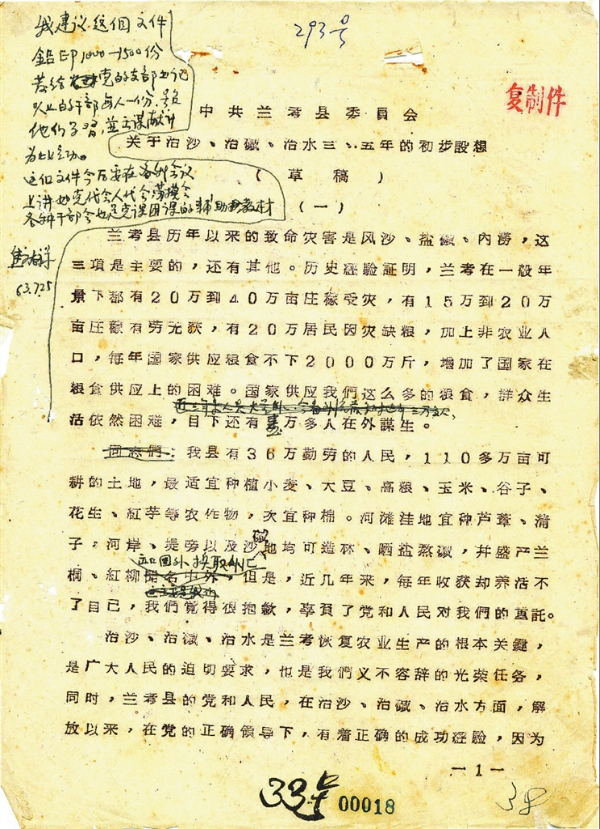 293号
我建议这个文件
铅印1000—1500份
发给党的支部书记
以上的干部每人一份，
他们学习并主谋献计
为此
这个文件今后要在各种会议
上讲如党代会人代会劳模会
各种干部会也是党课团课的辅助教材
63.7.25
复制件
中共兰考县委員会
关于治沙、治碱、治水三、五年的初步設想
（草稿）
（一）
兰考县历年以来的致命灾害是风沙、盐碱、內涝，这
三項是主要的，还有其他。历史经驗証明，兰考在一般年
景下都有20万到40万亩庄稼受灾，有15万到20万
亩庄稼有劳无获，有20万居民因灾缺粮，加上非农业人
口，每年国家供应粮食不下2000万斤，增加了国家在
粮食供应上的困难。国家供应我們这么多的粮食，群众生
活依然困难，目下还有万多人在外謀生。
同志們：我县有36万勤劳的人民，110多万亩可
耕的土地，最适宜种植小麦、大豆、高粮、玉米、谷子、
花生、紅芋等农作物，次宜种棉。河滩洼地宜种芦葦、蒲
子，河岸、堤旁以及沙碱地均可造林、晒盐熬碱，并盛产兰
远口国外换取外汇
桐、紅柳但是，近几年来，每年收获却养活不
了自已，我們覚得很抱歉，辜負了党和人民对我們的重託。
治沙、治碱、治水是兰考恢复农业生产的根本关鍵，
是广大人民的迫切要求，也是我們义不容辞的光荣任务，
同时，兰考县的党和人民，在治沙、治碱、治水方面，解
放以来，在党的正确領导下，有着正确的成功经驗，因为
—1—
33号 00018 38